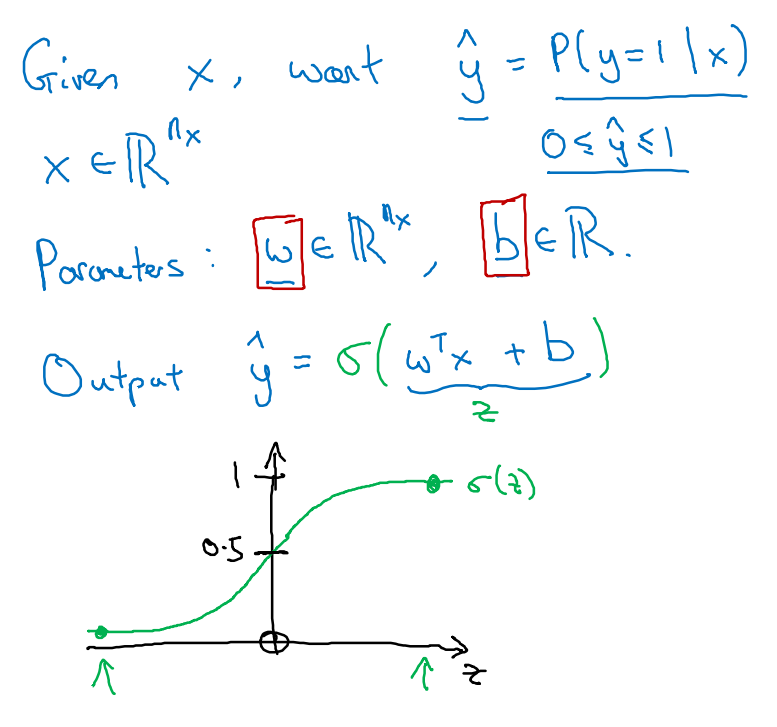 Given x, want ŷ = P(y=1|x)
x ∈ ℝ^{n_x}
0 ≤ ŷ ≤ 1
Parameters: w ∈ ℝ^{n_x}, b ∈ ℝ.
Output ŷ = σ(w^T x + b)
z
1
σ(z)
0.5
0
z